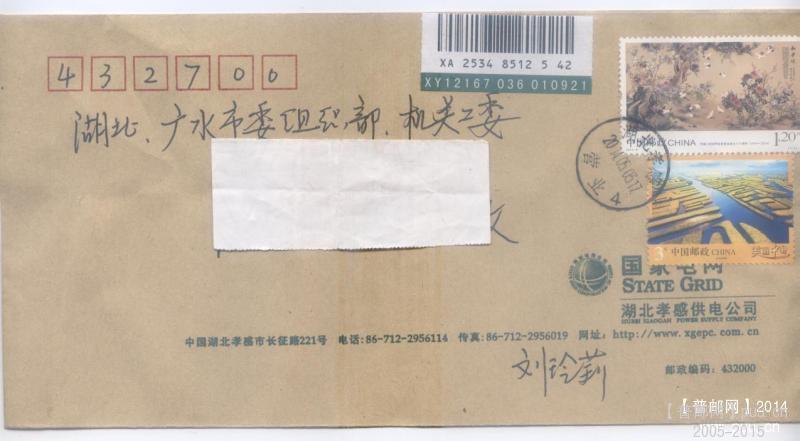 XA 2534 8512 5 42
XY12167 036 010921
432700
湖北、广水市委组织部、机关工委
1.20
中国邮政 CHINA
3
中国邮政 CHINA
美丽中国
湖北孝感
营业
4
国家电网
STATE GRID
湖北孝感供电公司
HUBEI XIAOGAN POWER SUPPLY COMPANY
中国湖北孝感市长征路221号 电话:86-712-2956114 传真:86-712-2956019 网址:http://www.xgepc.com.cn
刘玲莉
邮政编码:432000
【普邮网】2014
2005-2015